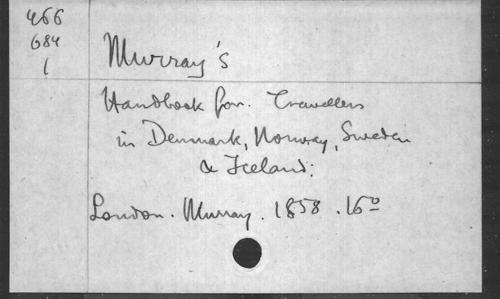 466
684
1
Murray's
Handbook for. Travellers
in Denmark, Norway, Sweden
& Iceland:
London. Murray. 1858. 16º